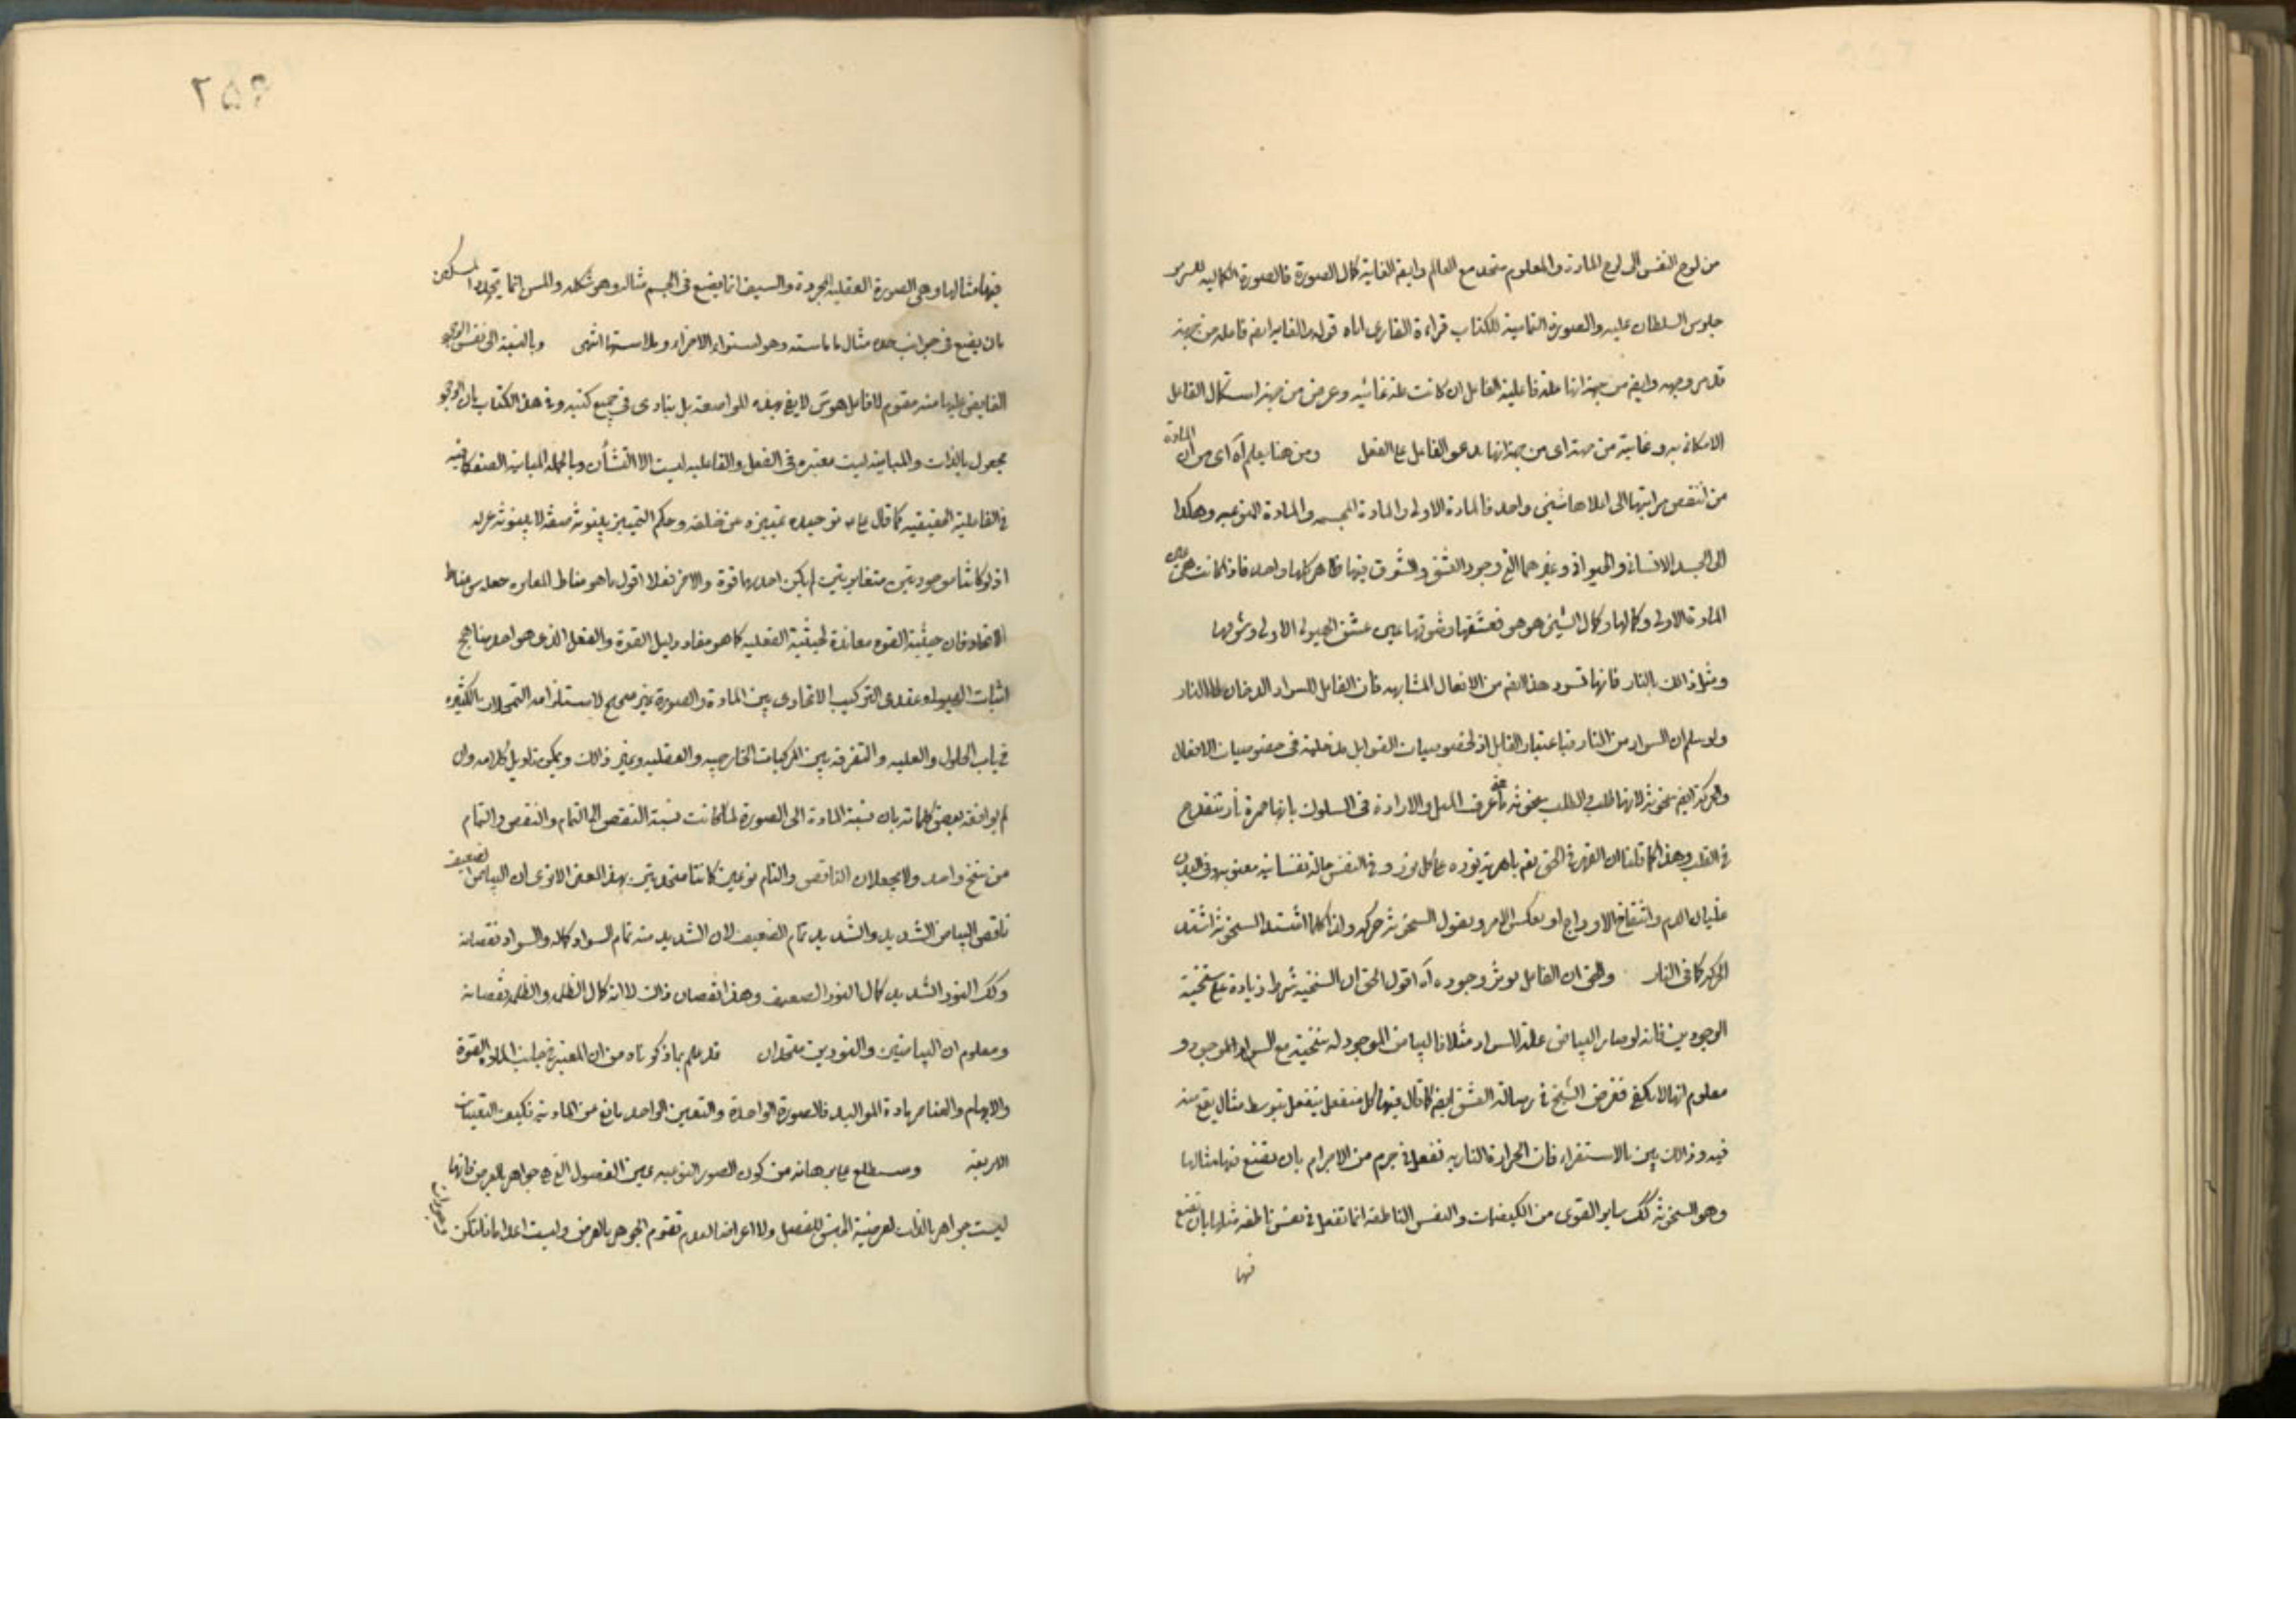 من لوح النفس الى لوح المادة والمعلوم متحد مع العالم وايضا الغاية كمال الصورة فالصورة الكمالية للسرير
جلوس السلطان عليه والصورة التمامية للكتاب قراءة القارى اياه قوله والغاية ايضا فاعله من جهة
قد مر وجهه وايضا من جهة انها علة فاعلية الفاعل ان كانت علة غائيه وعرض من جهة استكمال القابل
الامكانى به وغاية من جهة اى من جهة انها يدعو الفاعل على الفعل ومن هنا يعلم آه اى من ان المادة
من انقص مراتبها الى اعلاها شيئى واحد فالمادة الاولى والمادة المجسمه والمادة النوعيه وهكذا
الى الجسد الانسانى والحيوانى وغيرهما التى وجود العشق والشوق فيها ظاهر كلها واحده فاذا كانت هى عين
المادة الاولى وكمالها وكمال الشيئ هو هو فعشقها وشوقها عين عشق الهيولى الاولى وشوقها
ومثل ذلك بالنار فانها تسود هذا ايضا من الافعال المتشابهه فان القابل للسواد الدخان لا النار
ولو سلم ان السواد من النار فباعتبار القابل اذ لخصوصيات القوابل مدخلية فى خصوصيات الافعال
والحركة ايضا سخونة لانها طلب والطلب سخونة عرف الميل والارادة فى السلوك بانها جمرة نار تنقدح
فى القلب وهذا كما قلنا ان القهر فى الحق تعم باهرية نوره على كل نور وفى النفس حالة نفسانيه معنويه وفى البدن
غليان الدم وانتفاخ الاوداج او بعكس الامر ونقول السخونة حركه ولذا كلما اشتد السخونة اشتد
الحركة كما فى النار والحق ان الفاعل يؤثر وجوده آه اقول الحق ان السنخية شرط زيادة على سنخية
الوجودين فانه لو صار البياض علة للسواد مثلا فالبياض الموجود له سنخية مع السواد الموجود و
معلوم انها لا يكفى فغرض الشيخ فى رسالة العشق ايضا كما قال فيها كل منفعل ينفعل بتوسط مثال يقع منه
فيه وذلك بين بالاستقراء فان الحرارة النارية تفعل فى جرم من الاجرام بان تضع فيها مثالها
وهو السخونة كك ساير القوى من الكيفيات والنفس الناطقه انما تفعل فى نفس ناطقه مثلها بان تضع
فيها
٢٥۶
فيها مثالها وهى الصورة العقليه المجردة والسيف انما يضع فى الجسم مثاله وهو شكله والمسن انما يحدد السكين
بان يضع فى جوانب حده مثال ما ماسته وهو استواء الاجزاء وملاستها انتهى وبالنسبة الى نفس الوجود
الفايض عليها منه مقوم لا فاعل هو س لا يفى بهذه المواضعه بل ينادى فى جميع كتبه وفى هذا الكتاب بان الوجود
مجعول بالذات والمباينه ليست معتبره فى الفعل والفاعليه ليست الا التشأن وبالجمله المباينة الصفة كافيه
فى الفاعلية الحقيقيه كما قال ع توحيده تمييزه عن خلقه وحكم التمييز بينونة صفة لا بينونة عزله
اذ لو كانتا موجودتين متغايرتين لم يكن احديهما قوة والاخرى فعلا اقول ما هو مناط المغايره جعله س مناط
الاتحاد فان حيثية القوه معاندة لحيثية الفعليه كما هو مفاد دليل القوة والفعل الذى هو احد مناهج
اثبات الهيولى وعندى التركيب الاتحادى بين المادة والصورة غير صحيح لاستلزامه التمحلات الكثيره
فى باب الحلول والعليه والتفرقه بين المركبات الخارجيه والعقليه وغير ذلك ويمكن تاويل كلامه وان
لم يوافقه بعض كلماته بان نسبة المادة الى الصورة لما كانت نسبة النقص الى التمام والنقص والتمام
من سنخ واحد ولا يجعلان الناقص والتام نوعين كانتا متحدتين بهذا المعنى الا ترى ان البياض الضعيف
ناقص البياض الشديد والشديد تمام الضعيف لان الشديد منه تمام السواد كماله والسواد نقصانه
وكك النور الشديد كمال النور الضعيف وهذا نقصان ذلك لا انه كمال الظلمه والظلمه نقصانه
ومعلوم ان البياضين والنورين متحدان قد علم بما ذكرناه من ان المعتبر فى جانب المادة القوة
والابهام والعناصر مادة المواليد فالصورة الواحدة والتعين الواحد مانع من المادية فكيف التعينات
الاربعة وستطلع على برهانه من كون الصور النوعيه عين الفصول التى هى جواهر بالعرض فانها
ليست جواهر بالذات لعرضية الجنس للفصل ولا اعراضا لعدم تقوم الجوهر بالعرض وليست اعداما فلتكن